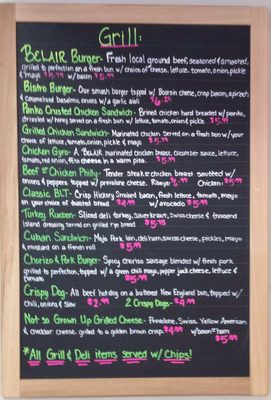 Grill:
BELAIR Burger- Fresh local ground beef, seasoned & smashed,
grilled to perfection on a fresh bun w/ choice of cheese, lettuce, tomato, onion, pickle
& mayo $4.99 w/bacon $5.99
Bistro Burger- Our smash burger topped w/ Boursin cheese, crisp bacon, spinach
& caramelized balsamic onions w/ a garlic aioli $6.25
Panko Crusted Chicken Sandwich- Brined chicken hand breaded w/ panko,
drizzled w/ honey served on a fresh bun w/ lettuce, tomato, onion & pickle $5.99
Grilled Chicken Sandwich- Marinated chicken served on a fresh bun w/ your
choice of cheese, lettuce, tomato, onion, pickle & mayo. $5.99
Chicken Gyro- A BELAIR marinated chicken breast, cucumber sauce, lettuce,
tomato, red onion, feta cheese in a warm pita. $5.99
Beef or Chicken Philly- Tender steak or chicken breast sautéed w/
onions & peppers topped w/ provolone cheese. Chicken $5.99
Classic BLT- Crisp Hickory Smoked bacon, fresh lettuce, tomato, mayo
on your choice of toasted bread $4.99 w/avocado $5.99
Turkey Rueben- Sliced deli turkey, sauerkraut, Swiss cheese & thousand
island dressing served on grilled rye bread $5.99
Cuban Sandwich- Mojo Pork loin, deli ham, swiss cheese, pickles, mayo
& mustard on a french roll $5.99
Chorizo & Pork Burger- Spicy chorizo sausage blended w/ fresh pork
grilled to perfection, topped w/ a green chili mayo, pepper jack cheese, lettuce &
tomato $5.99
Crispy Dog- All beef hot dog on a buttered New England bun, topped w/
chili, onions & slaw $2.99 2 Crispy Dogs- $4.99
Not so Grown Up Grilled Cheese- Provolone, Swiss, Yellow American
& cheddar cheese, grilled to a golden brown crisp $4.99 w/bacon or ham
$5.99
*All Grill & Deli items served w/ Chips!